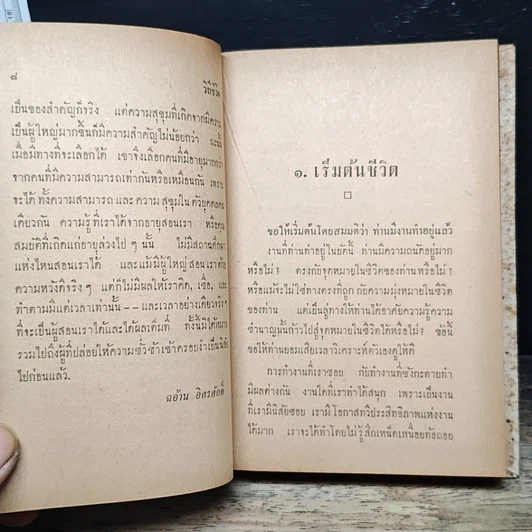 ๘
วิถีชีวิต
เป็นของสำคัญก็จริง แต่ความสุขุมที่เกิดจากมีความ
เป็นผู้ใหญ่มากขึ้นก็มีความสำคัญไม่น้อยกว่า ฉะนั้น
เมื่อมีทางที่จะเลือกได้ เขาจึงเลือกคนที่มีอายุมากกว่า
จากคนที่มีความสามารถเท่ากันหรือเหมือนกัน เพราะ
จะได้ ทั้งความสามารถ และ ความสุขุม ใน ตัวบุคคลคน
เดียวกัน ความรู้ที่เราได้จากอายุสอนเรา หรือคว
สมบัติที่เกิดแก่อายุล่วงไป ๆ นั้น ไม่มีสถานศึกษา
แห่งไหนสอนเราได้ และแม้มีผู้ใหญ่สอนเราด้ว
ความหวังดีจริง ๆ แต่ก็ไม่มีผลให้เราคิด, เชื่อ, และ
ทำตามมีแต่เวลาเท่านั้น -- และเวลาอย่างเดียวจริง ๆ
ที่จะเป็นผู้สอนเราได้และได้ผลเต็มที่ ทั้งนี้มิได้หมาย
รวมไปถึงผู้ที่ปล่อยให้ความชั่วช้าเข้าครอบงำเป็นนิสัย
ไปก่อนแล้ว.
ฉอ้าน อิศรศักดิ์
๑. เริ่มต้นชีวิต
ขอให้เริ่มต้นโดยสมมติว่า ท่านมีงานทำอยู่แล้ว
งานที่ท่านทำอยู่ในบัดนี้ ท่านมีความถนัดอยู่มาก
หรือไม่ ? ตรงกับจุดหมายในชีวิตของท่านหรือไม่ ?
หรือแม้จะไม่ใช่ทางตรงที่ถูก กับความมุ่งหมายในชีวิต
ของท่าน แต่เป็นลู่ทางให้ท่านได้อาศัยความรู้ความ
ชำนาญนั้นก้าวไปสู่จุดหมายในชีวิตได้หรือไม่? ข้อนี้
ขอให้ท่านยอมเสียเวลาวิเคราะห์ตัวเองดูให้ดี
การทำงานที่เราชอบ กับทำงานที่ซังกะตายทำ
มีผลต่างกัน งานใดที่เราทำได้สนุก เพราะเป็นงาน
ที่เรามีนิสัยชอบ เรามีโอกาสทวีประสิทธิภาพแห่งงาน
ได้มาก เราจะได้ทำโดยไม่รู้สึกเหน็ดเหนื่อยท้อถอย